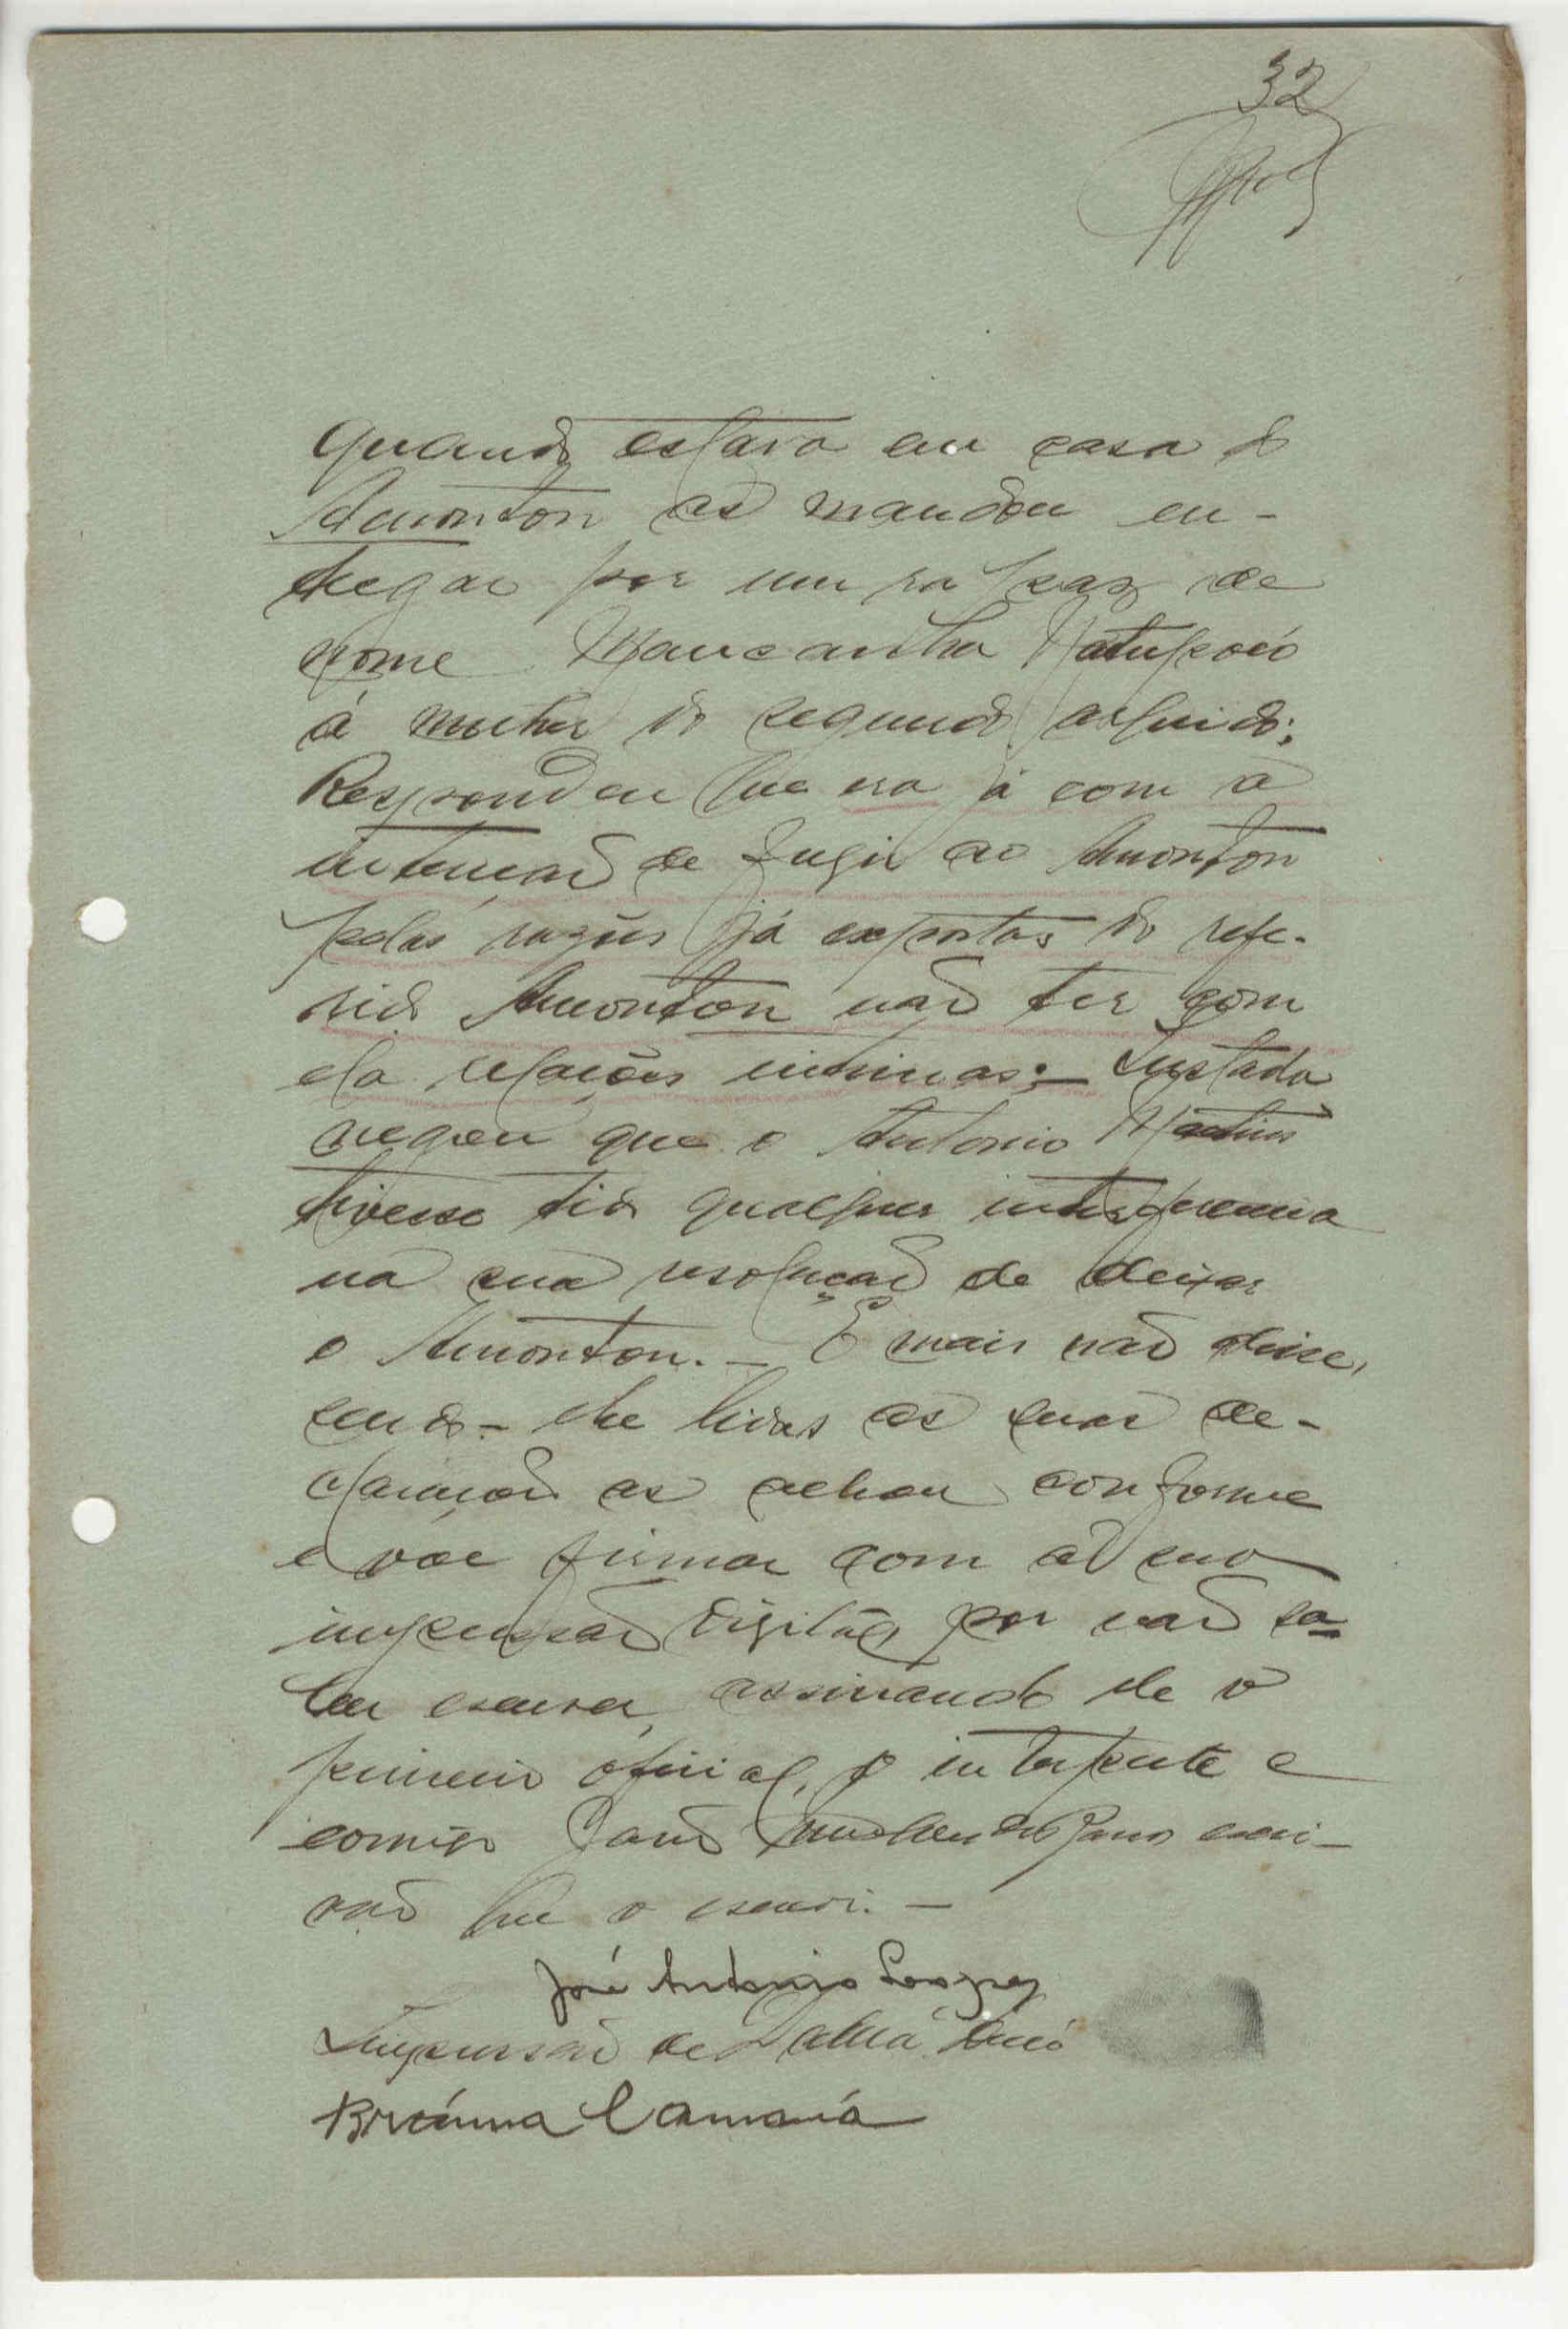 32
quando estava em casa do
Amonton as mandou en-
tregar por um rapaz de
nome
á mulher do segundo arguido;
Respondeu que era já com a
intenção de fugir ao Amonton
pelas razões já expostas do refe-
rido Amonton não ter com
ela relações intimas; – Instada
negou que o Antonio Martins
tivesse tido qualquer interferencia
na sua resolução de deixar
o Amonton. – E mais não disse,
sendo-lhe lidas as suas de-
clarações as achou conforme
e vae firmar com a sua
impressão digital, por não sa-
ber escrever, assinando ele o
primeiro oficial, o interprete e
comigo escri-
vão que o escrevi. –
José Antonio Lopes
Impressão de
Camará